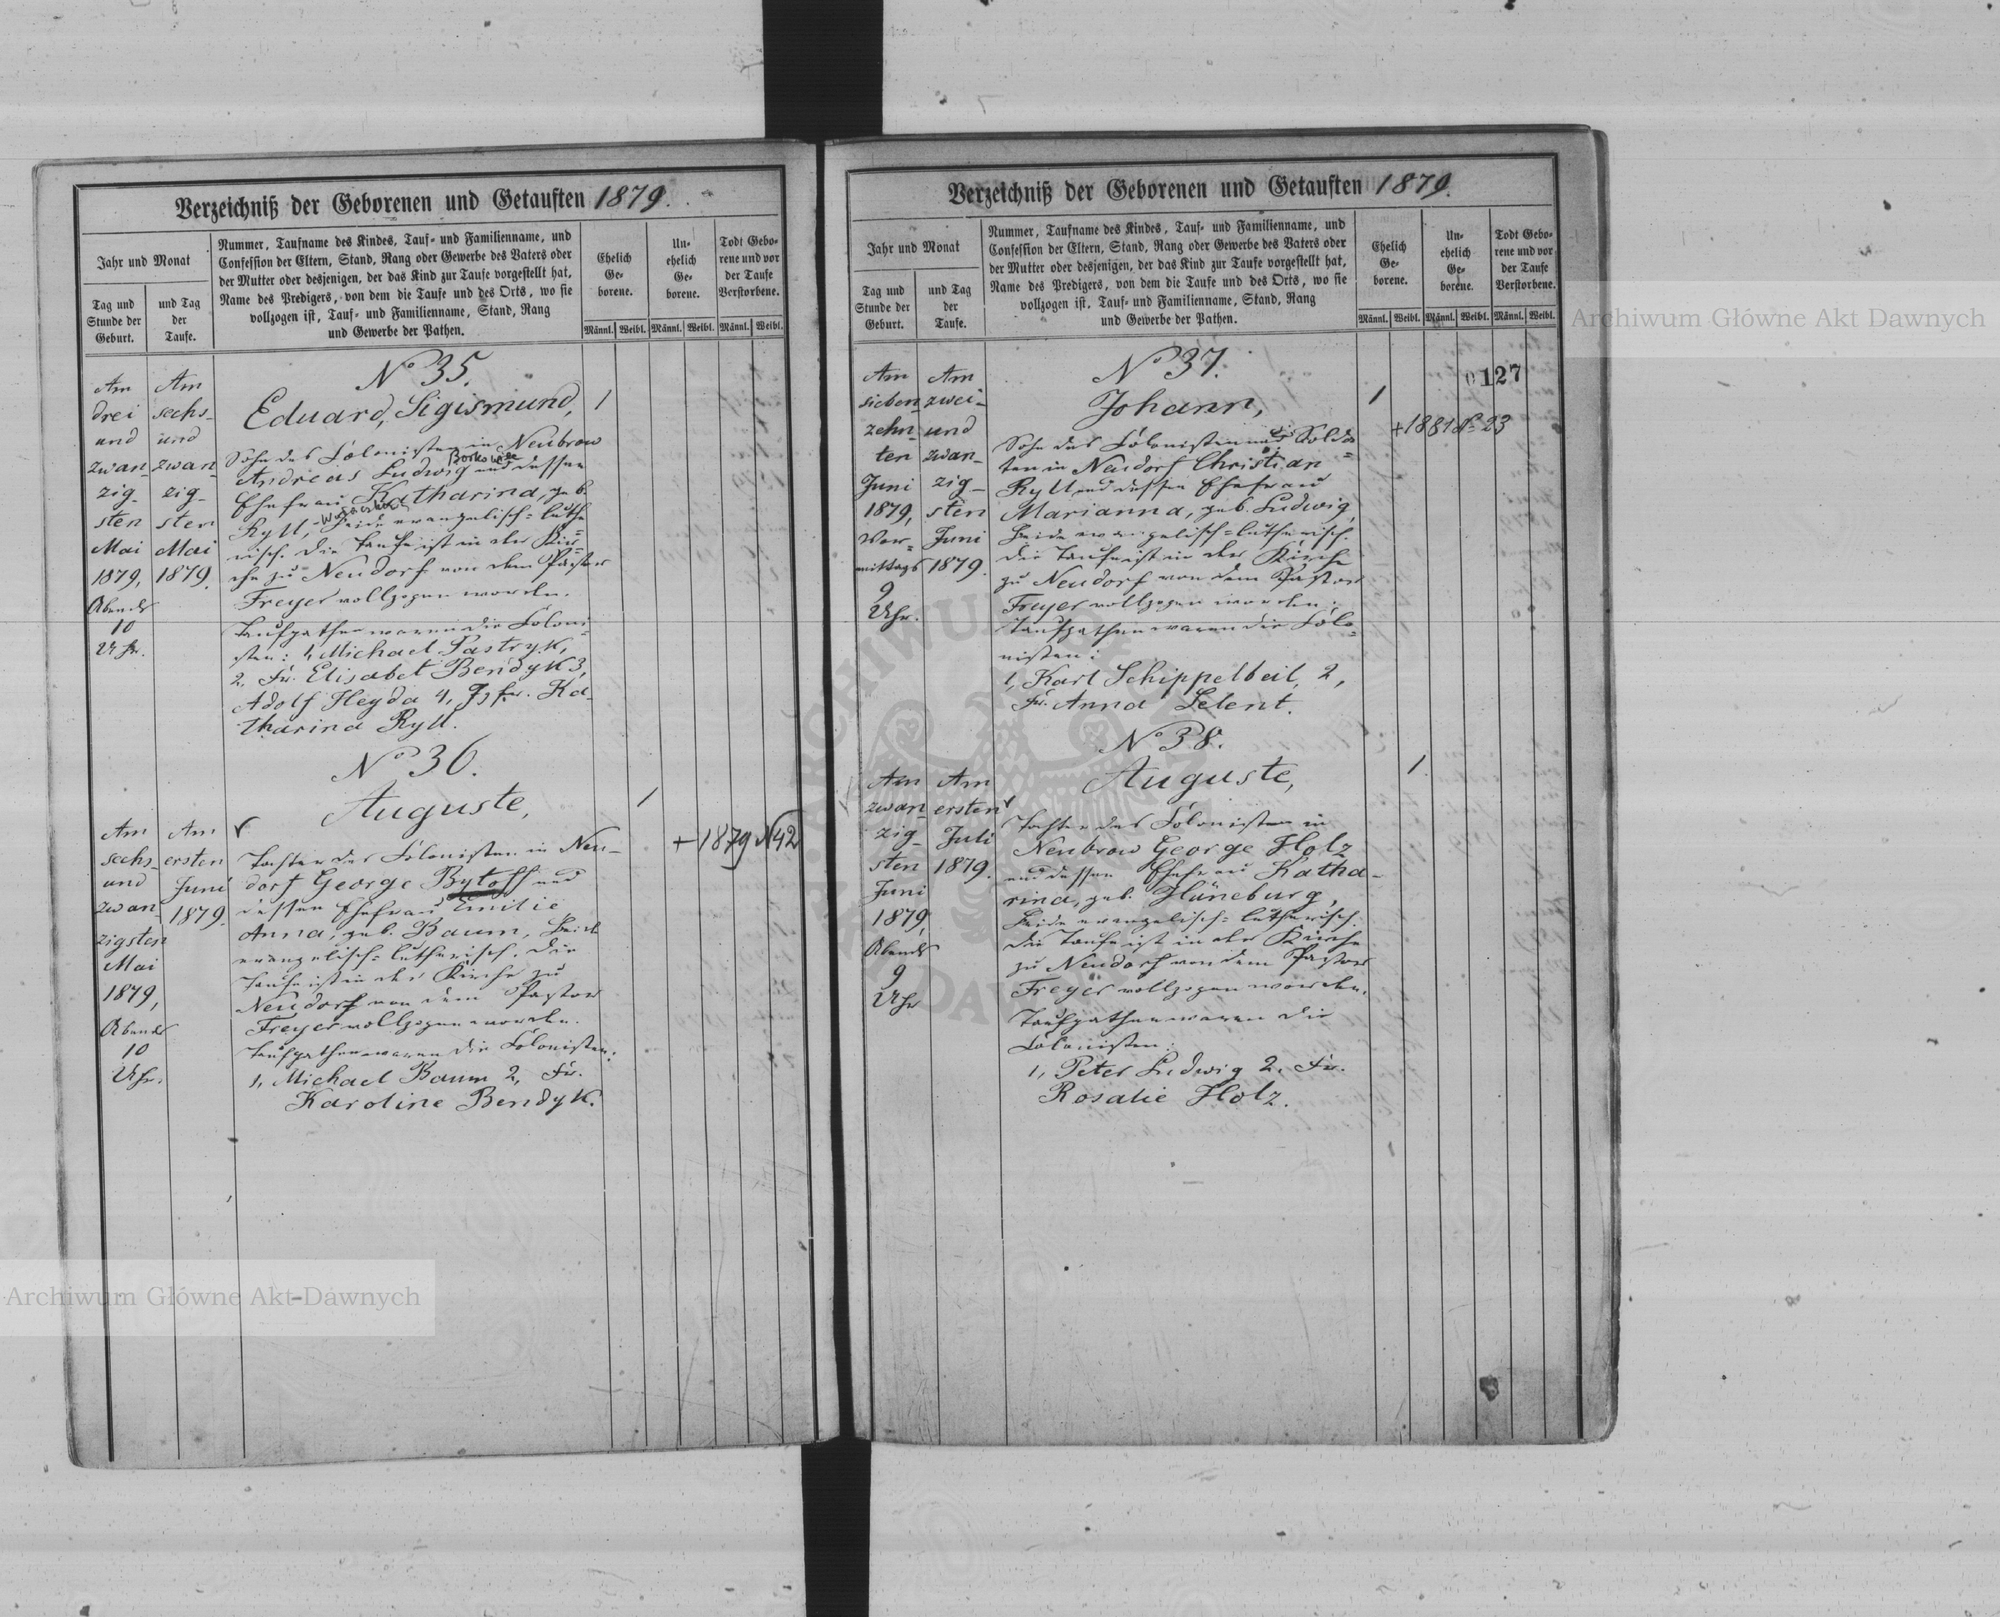 Verzeichniß der Geborenen und Getauften 1879.
Jahr und Monat
Tag und
Stunde der
Geburt.
und Tag
der
Taufe.
Nummer, Taufname des Kindes, Tauf- und Familienname, und
Confession der Eltern, Stand, Rang oder Gewerbe des Vaters oder
der Mutter oder desjenigen, der das Kind zur Taufe vorgestellt hat,
Name des Predigers, von dem die Taufe und des Orts, wo sie
vollzogen ist, Tauf- und Familienname, Stand, Rang
und Gewerbe der Pathen.
Ehelich
Ge-
borene.
Un-
ehelich
Ge-
borene.
Todt Gebo-
rene und vor
der Taufe
Verstorbene.
Männl. Weibl. Männl. Weibl. Männl. Weibl.
Am
drei
und
zwan-
zig-
sten
Mai
1879,
Abends
10
Uhr.
Am
sechs-
und
zwan-
zig-
sten
Mai
1879.
No 35.
Eduard, Sigismund,
1
Sohn des Colonisten in Neubrow
Andreas Ludwig und dessen
Ehefrau Katharina, geb.
Ryll, Beide evangelisch-luthe-
risch. Die Taufe ist in der Kir-
che zu Neudorf von dem Pastor
Freyer vollzogen worden.
Taufpathen waren die Coloni-
sten: 1, Michael Pastryk,
2, Fr. Elisabet Bendyk 3,
Adolf Heyda 4, Jgfr. Ka-
tharina Ryll.
Am
sechs
und
zwan-
zigsten
Mai
1879,
Abends
10
Uhr.
Am
ersten
Juni
1879.
No 36.
Auguste,
1
+ 1879 N42
Tochter des Colonisten in Neu-
dorf George Bytoff und
dessen Ehefrau Emilie
Anna, geb. Baum, Beide
evangelisch-lutherisch. Die
Taufe ist in der Kirche zu
Neudorf von dem Pastor
Freyer vollzogen worden.
Taufpathen waren die Colonisten:
1, Michael Baum 2, Fr.
Karoline Bendyk.
Verzeichniß der Geborenen und Getauften 1879.
Jahr und Monat
Tag und
Stunde der
Geburt.
und Tag
der
Taufe.
Nummer, Taufname des Kindes, Tauf- und Familienname, und
Confession der Eltern, Stand, Rang oder Gewerbe des Vaters oder
der Mutter oder desjenigen, der das Kind zur Taufe vorgestellt hat,
Name des Predigers, von dem die Taufe und des Orts, wo sie
vollzogen ist, Tauf- und Familienname, Stand, Rang
und Gewerbe der Pathen.
Ehelich
Ge-
borene.
Un-
ehelich
Ge-
borene.
Todt Gebo-
rene und vor
der Taufe
Verstorbene.
Männl. Weibl. Männl. Weibl. Männl. Weibl.
0127
Am
sieben-
zehn-
ten
Juni
1879,
Vor-
mittags
9
Uhr.
Am
zwei-
und
zwan-
zig-
sten
Juni
1879.
No 37.
Johann,
1
+1881 No 23
Sohn des Colonisten und Solda-
ten in Neudorf Christian
Ryll und dessen Ehefrau
Marianna, geb. Ludwig,
Beide evangelisch-lutherisch.
Die Taufe ist in der Kirche
zu Neudorf von dem Pastor
Freyer vollzogen worden.
Taufpathen waren die Colo-
nisten:
1, Karl Schippelbeil, 2,
Fr. Anna Zelent.
Am
zwan-
zig-
sten
Juni
1879,
Abends
9
Uhr
Am
ersten
Juli
1879.
No 38.
Auguste,
1
Tochter des Colonisten in
Neubrow George Holz
und dessen Ehefrau Katha-
rina, geb. Hüneburg,
Beide evangelisch-lutherisch.
Die Taufe ist in der Kirche
zu Neudorf von dem Pastor
Freyer vollzogen worden.
Taufpathen waren die
Colonisten:
1, Peter Ludwig 2, Fr.
Rosalie Holz.
Archiwum Główne Akt Dawnych
Archiwum Główne Akt Dawnych